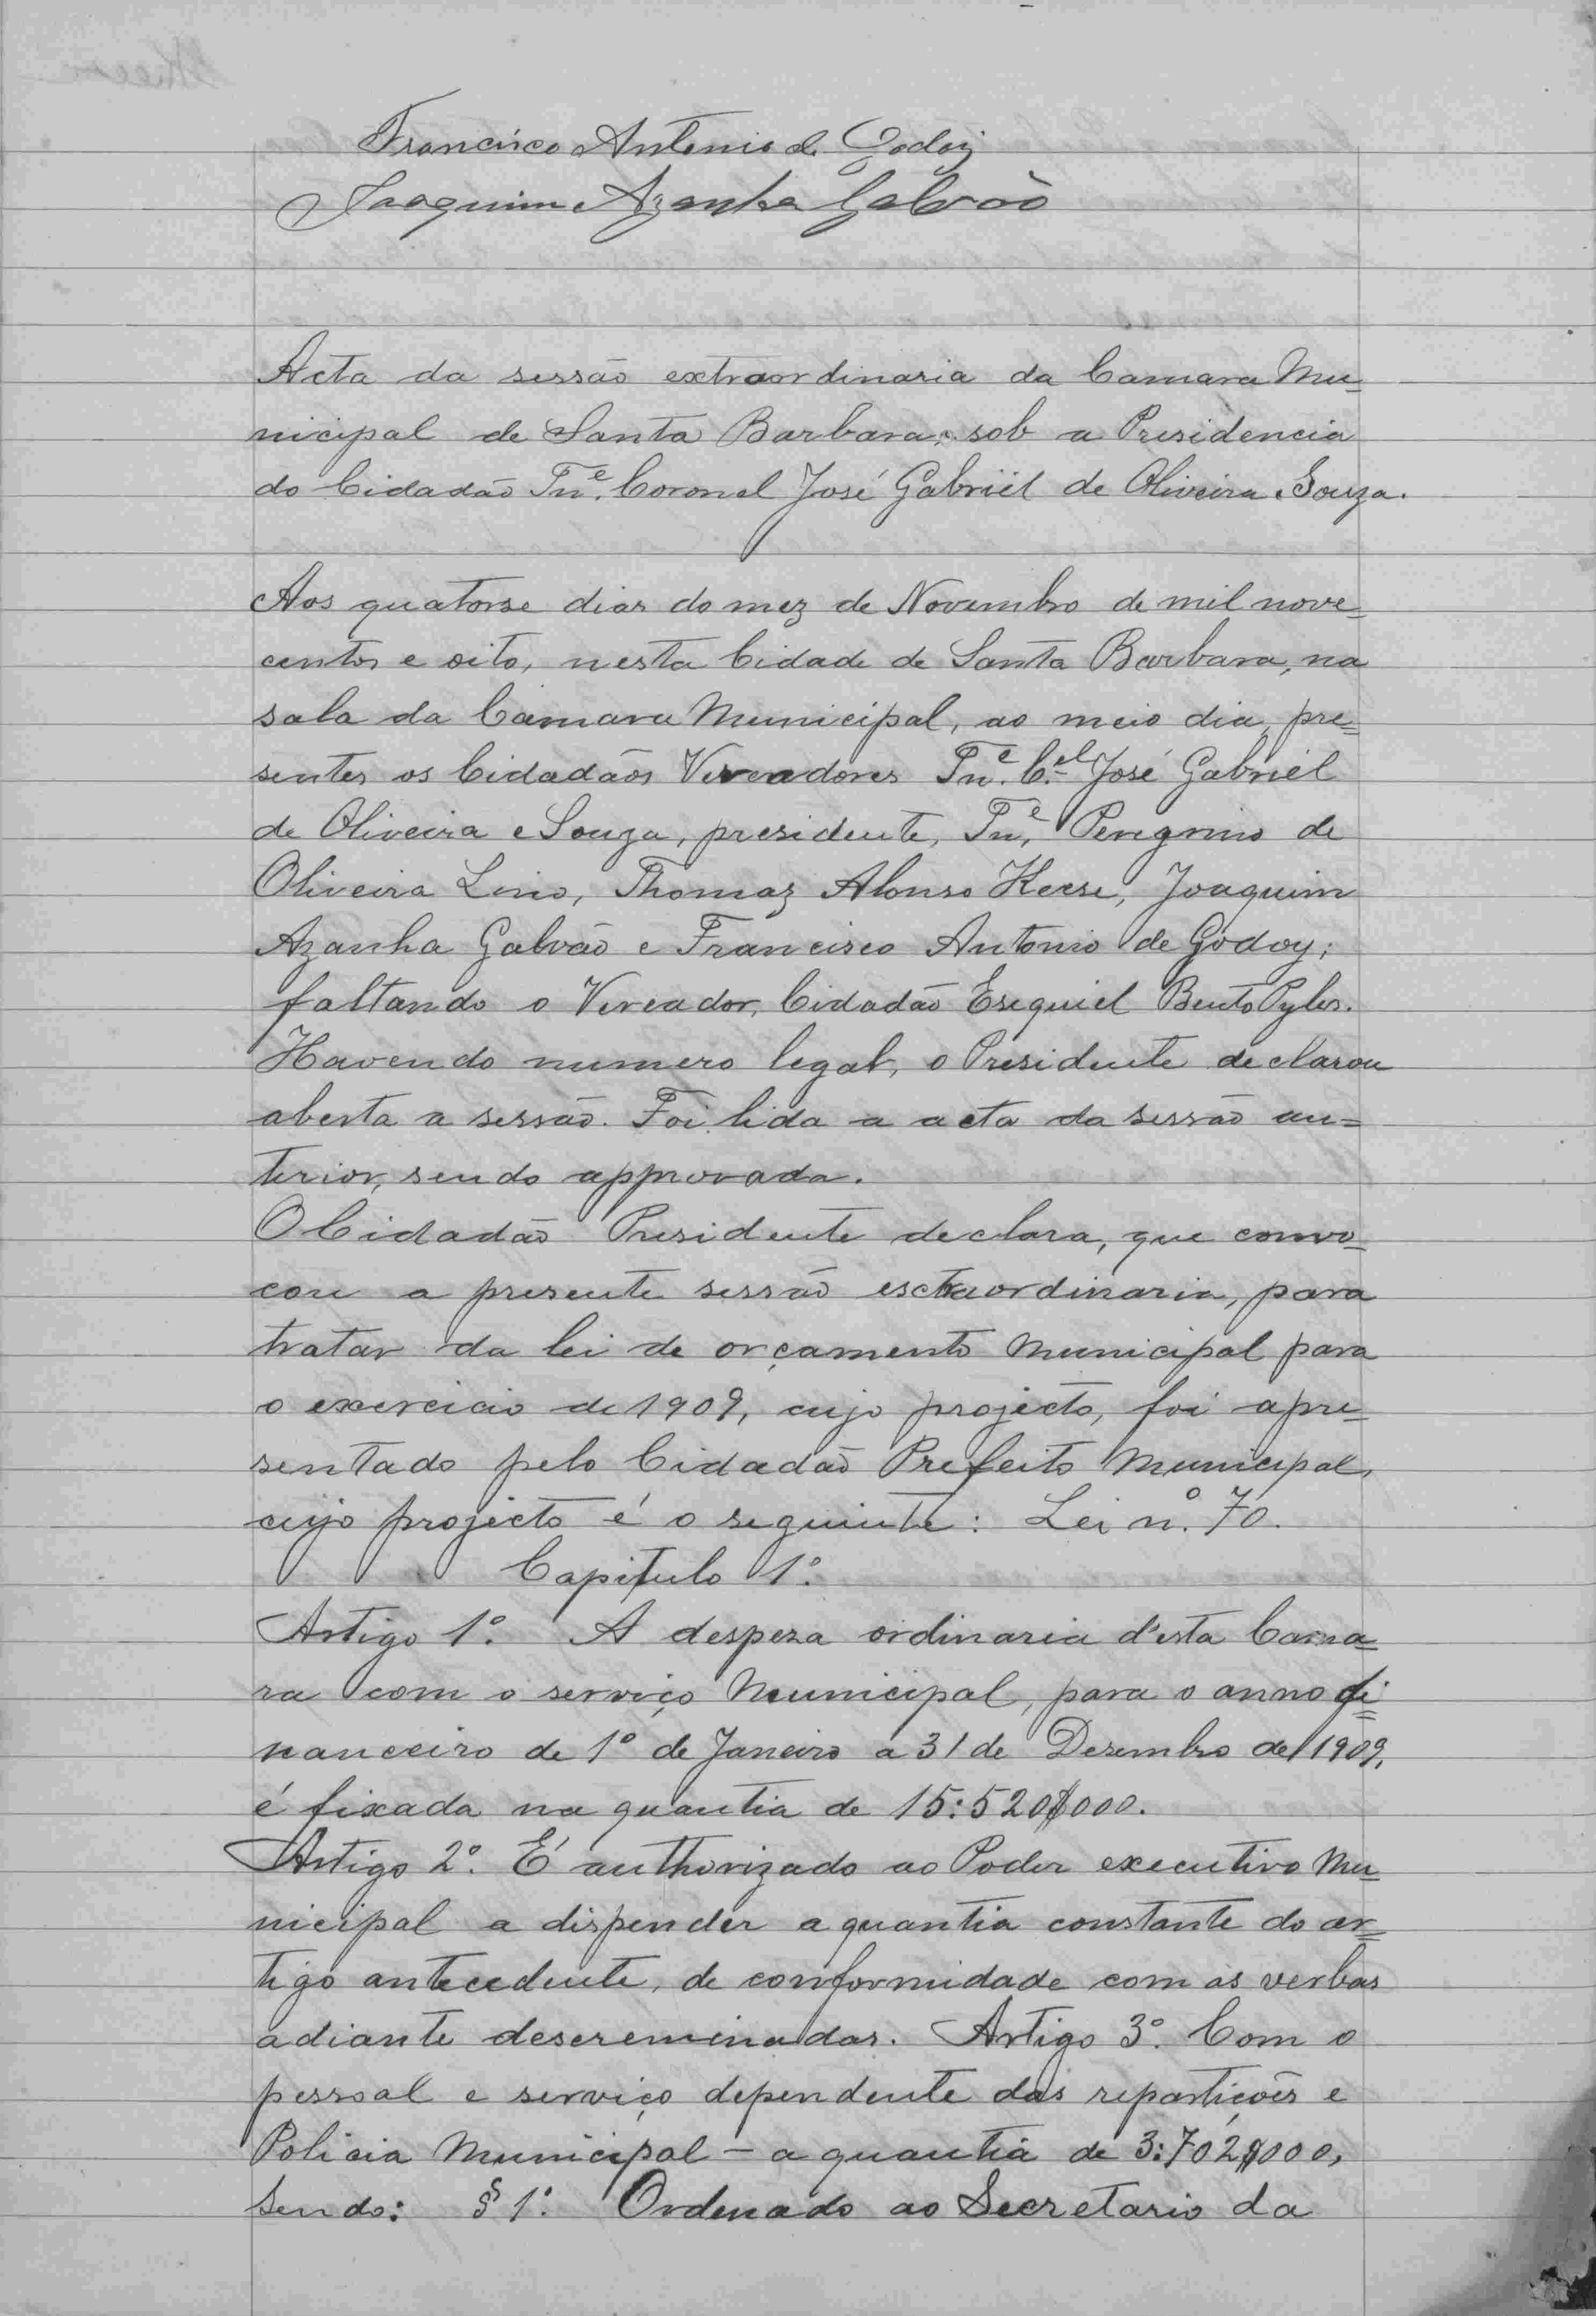 Francisco Antonio de Godoy
Joaquim Azanha Galvão
Acta da sessão extraordinaria da Camara Mu=
nicipal de Santa Barbara, sob a Presidencia
do Cidadão Tn.e Coronel José Gabriël de Oliveira Souza.
Aos quatorse dias do mez de Novembro de mil nove=
centos e oito, nesta Cidade de Santa Barbara, na
sala da Camara Municipal, ao meio dia, pre=
sentes os Cidadãos Vereadores Tn.e C.el José Gabriel
de Oliveira e Souza, presidente, Tn.e Peregrino de
Oliveira Lino, Thomaz Alonso Keese, Joaquim
Azanha Galvão e Francisco Antonio de Godoy;
faltando o Vereador, Cidadão Esequiel Bento Pyles.
Havendo numero legal, o Presidente declarou
aberta a sessão. Foi lida a acta da sessão an=
terior, sendo approvada.
O Cidadão Presidente declara, que convo=
cou a presente sessão esctraordinaria, para
tratar da lei de orçamento Municipal para
o exercicio de 1909, cujo projecto, foi apre=
sentado pelo Cidadão Prefeito Municipal,
cujo projecto é o seguinte: Lei n.º 70.
Capitulo 1.º
Artigo 1.º A despesa ordinaria d'esta Cama=
ra com o serviço Municipal, para o anno fi=
nanceiro de 1º de Janeiro a 31 de Desembro de 1909,
é fixada na quantia de 15:520$000.
Artigo 2.º É authorizado ao Poder executivo Mu=
nicipal a dispender a quantia constante do ar=
tigo antecedente, de conformidade com as verbas
adiante descreminadas. Artigo 3.º Com o
pessoal e serviço dependente das repartições e
Policia Municipal – a quantia de 3:702$000,
sendo: § 1.º Ordenado ao Secretario da